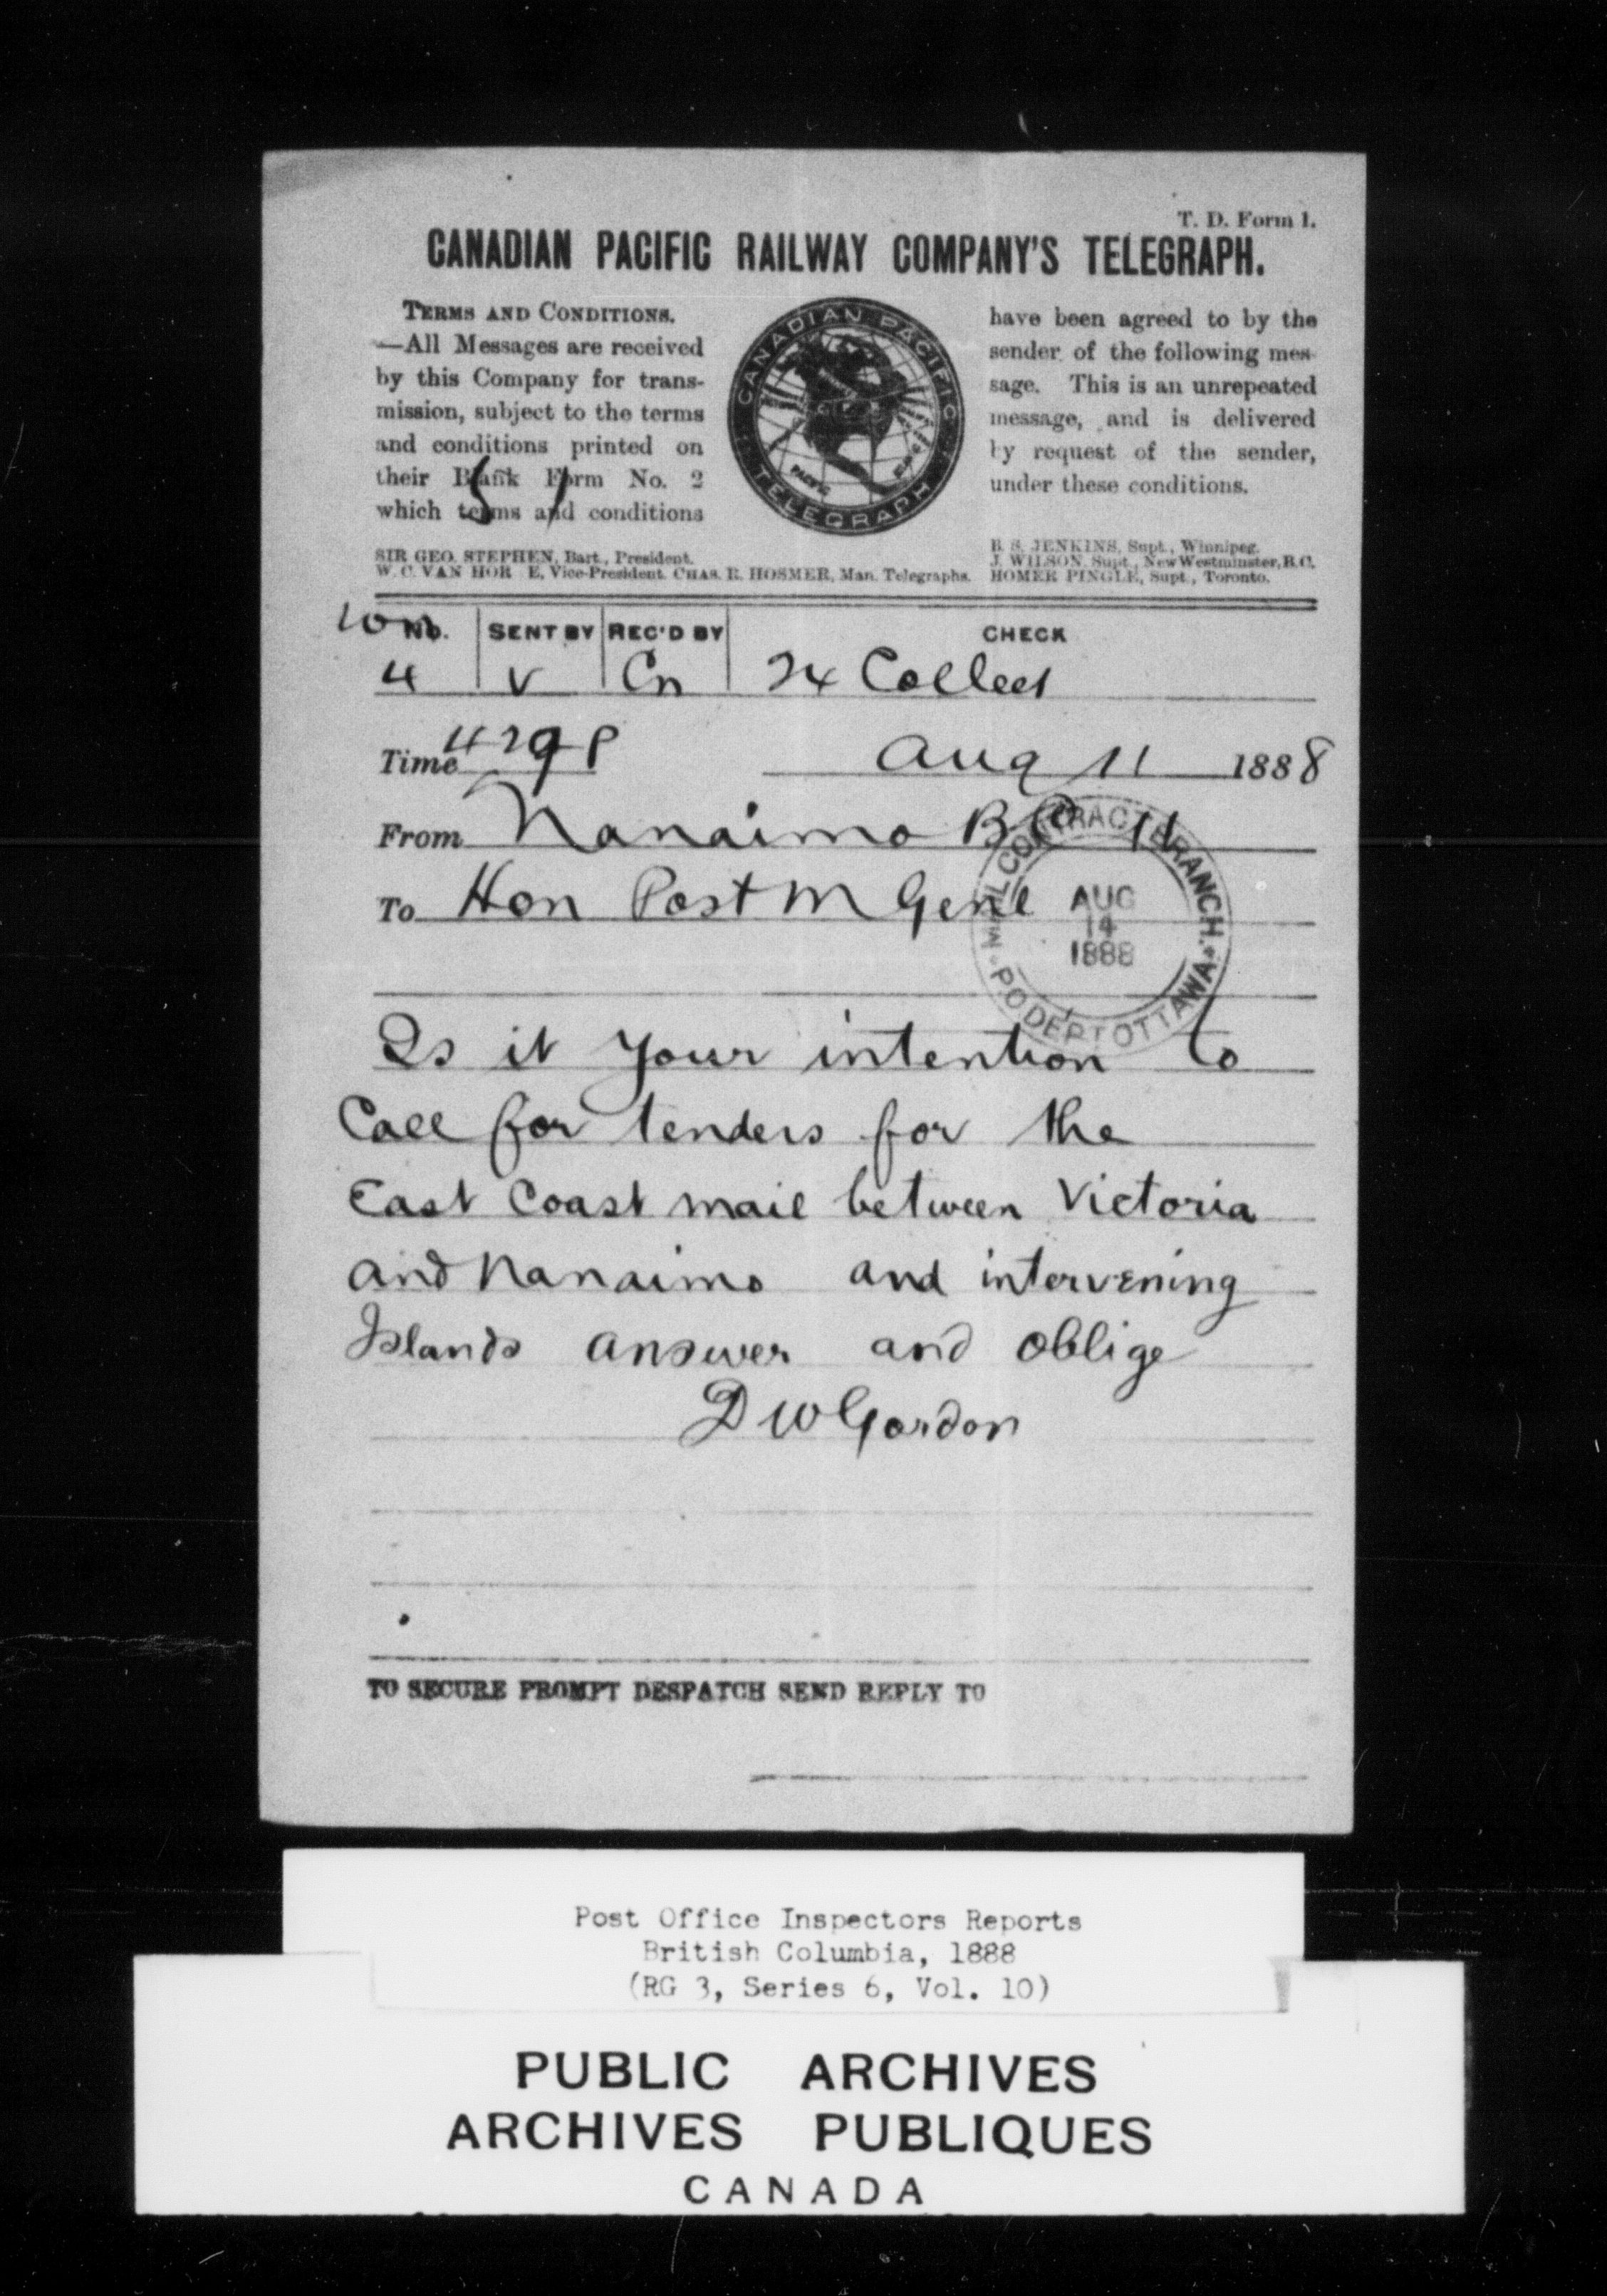 T. D. Form 1.
CANADIAN PACIFIC RAILWAY COMPANY'S TELEGRAPH.
TERMS AND CONDITIONS.
—All Messages are received
by this Company for trans-
mission, subject to the terms
and conditions printed on
their Blank Form No. 2
which terms and conditions
CANADIAN PACIFIC
TELEGRAPH
PACIFIC
have been agreed to by the
sender of the following mes-
sage. This is an unrepeated
message, and is delivered
by request of the sender,
under these conditions.
SIR GEO. STEPHEN, Bart., President.
W. C. VAN HOR E, Vice-President. CHAS. R. HOSMER, Man. Telegraphs.
B. S. JENKINS, Supt., Winnipeg.
J. WILSON, Supt., New Westminster, B.C.
HOMER PINGLE, Supt., Toronto.
No. SENT BY REC'D BY CHECK
4 V Cn 24 Collect
Time 429 P Aug 11 1888
From Nanaimo B C 11
To Hon Post M Genl
MAIL CONTRACT BRANCH.
AUG
14
1888
P.O DEPT OTTAWA
Is it your intention to
Call for tenders for the
East Coast mail between Victoria
and Nanaimo and intervening
Islands answer and oblige
D W Gordon
TO SECURE PROMPT DESPATCH SEND REPLY TO
Post Office Inspectors Reports
British Columbia, 1888
(RG 3, Series 6, Vol. 10)
PUBLIC ARCHIVES
ARCHIVES PUBLIQUES
CANADA